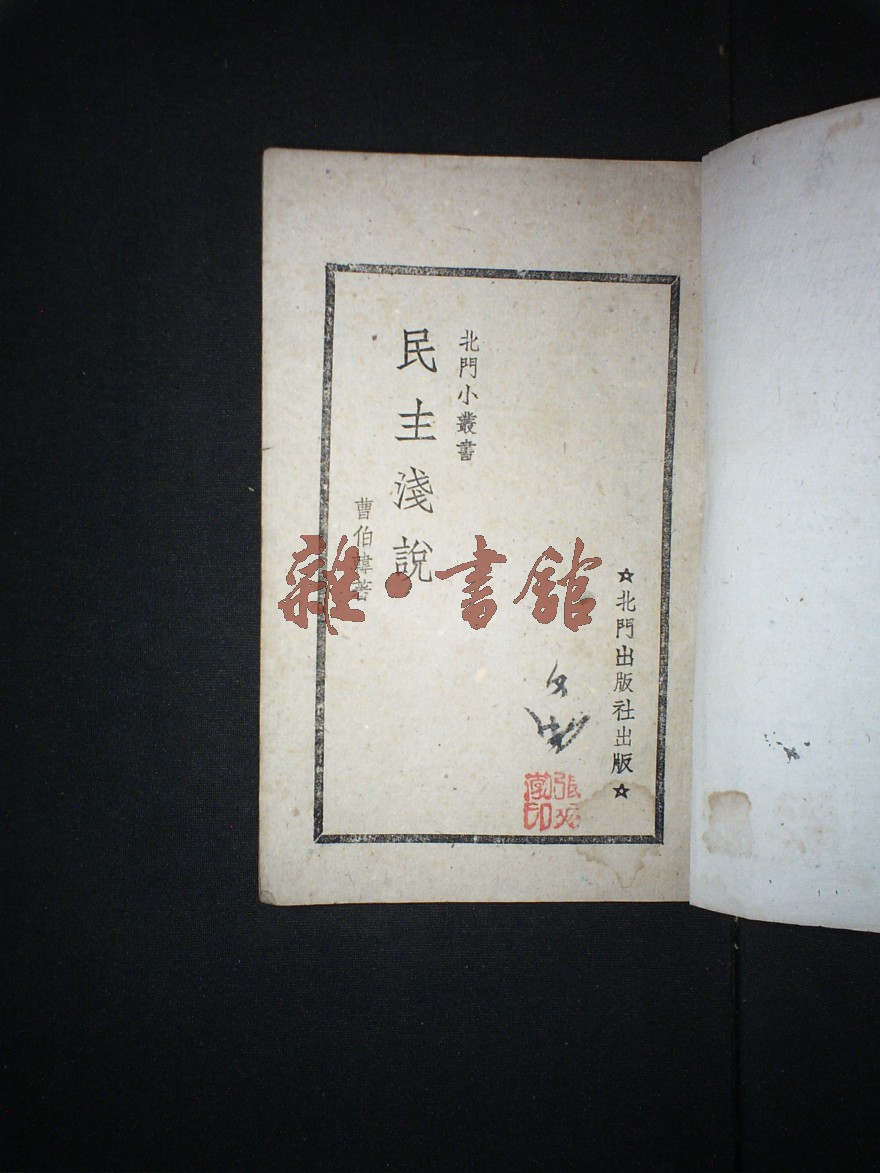 ☆北門出版社出版☆
北門小叢書
民主淺說
曹伯韓著
雜·書館